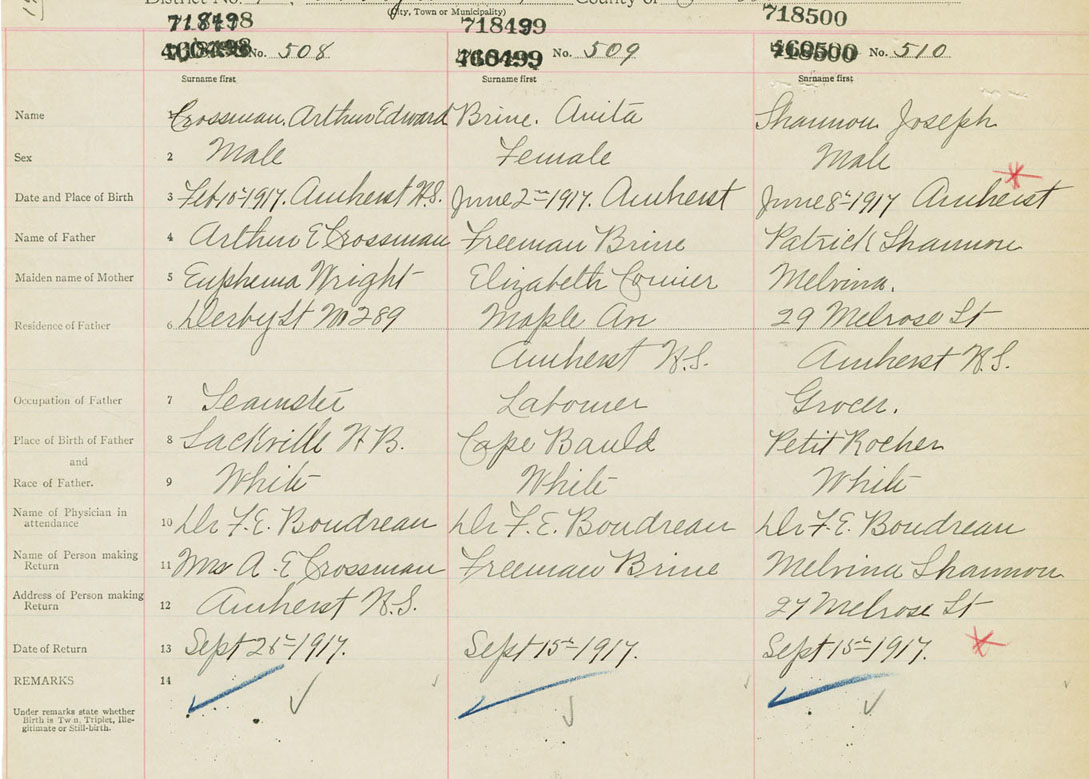 District No. (City, Town or Municipality) County of
718498 718499 718500
460498 No. 508 460499 No. 509 460500 No. 510
Surname first Surname first Surname first
Name 1 Crossman, Arthur Edward Brine. Anita Shannon Joseph
Sex 2 Male Female Male
Date and Place of Birth 3 Feb. 1917. Amherst N.S. June 2nd 1917. Amherst June 8th 1917 Amherst
Name of Father 4 Arthur E Crossman Freeman Brine Patrick Shannon
Maiden name of Mother 5 Euphema Wright Elizabeth Cormier Melvina.
Residence of Father 6 Derby St No 289 Maple Av 29 Melrose St
Amherst N.S. Amherst N.S.
Occupation of Father 7 Teamster Labourer Grocer.
Place of Birth of Father 8 Sackville N.B. Cape Bauld Petit Rocher
and
Race of Father. 9 White White White
Name of Physician in
attendance 10 Dr F. E. Boudreau Dr F. E. Boudreau Dr F. E. Boudreau
Name of Person making
Return 11 Mrs A. E Crossman Freeman Brine Melvina Shannon
Address of Person making
Return 12 Amherst N.S. 27 Melrose St
Date of Return 13 Sept 1917. Sept 15th 1917. Sept 15th 1917.
REMARKS 14
Under remarks state whether
Birth is Twin, Triplet, Ille-
gitimate or Still-birth.